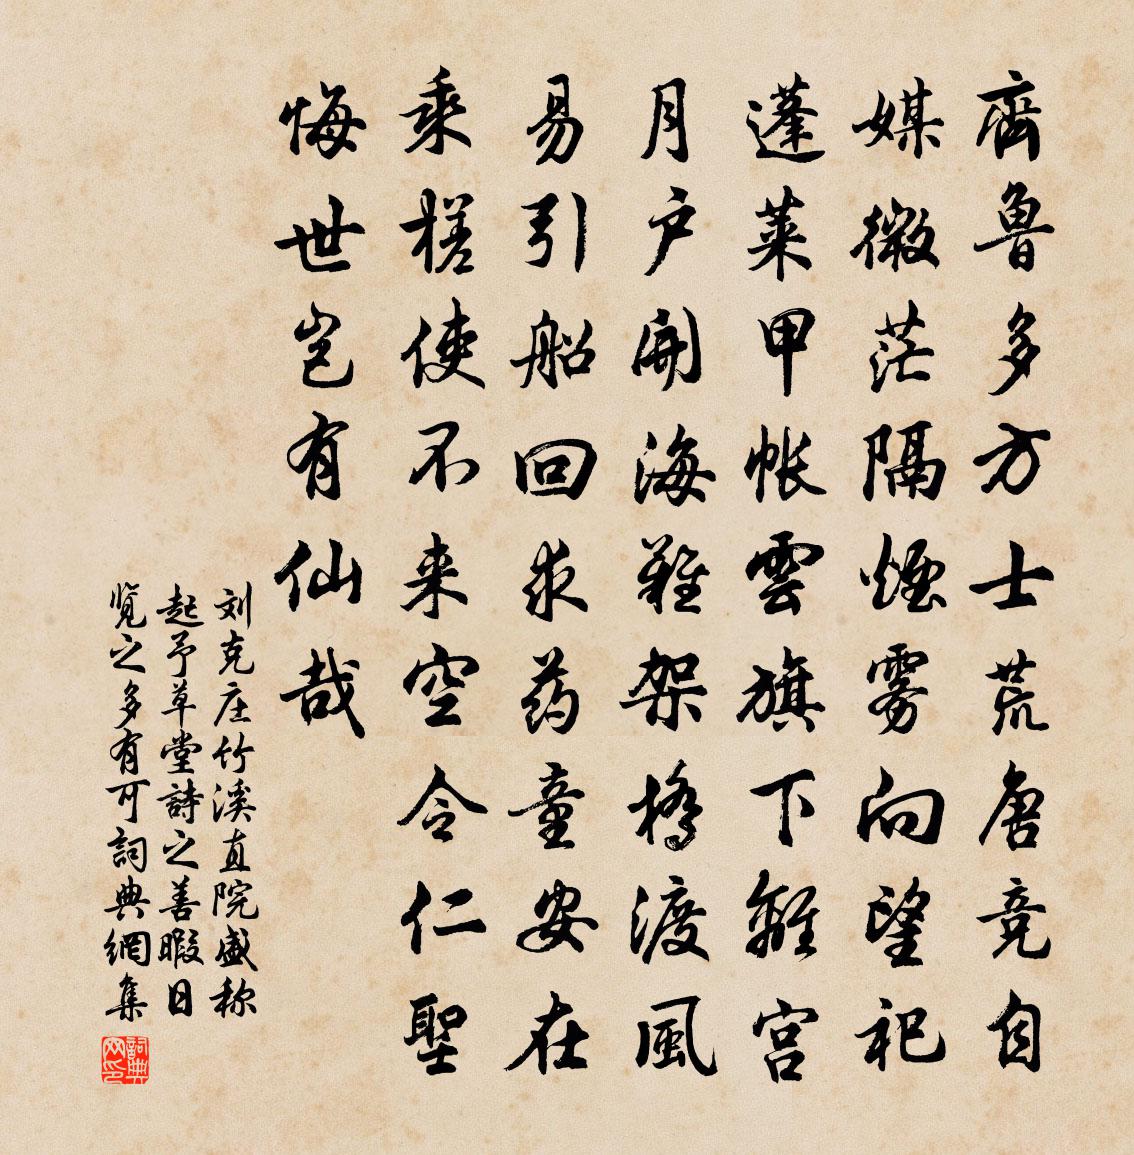 齊魯多方士荒唐竞自
媒微茫隔煙雾向望祀
蓬萊甲帐雲旗下離宫
月户開海難架橋渡風
易引船回求药童安在
乘槎使不来空令仁聖
悔世岂有仙哉
刘克庄竹溪直院盛称
起予草堂詩之善暇日
览之多有可詞典網集
詞典
网印